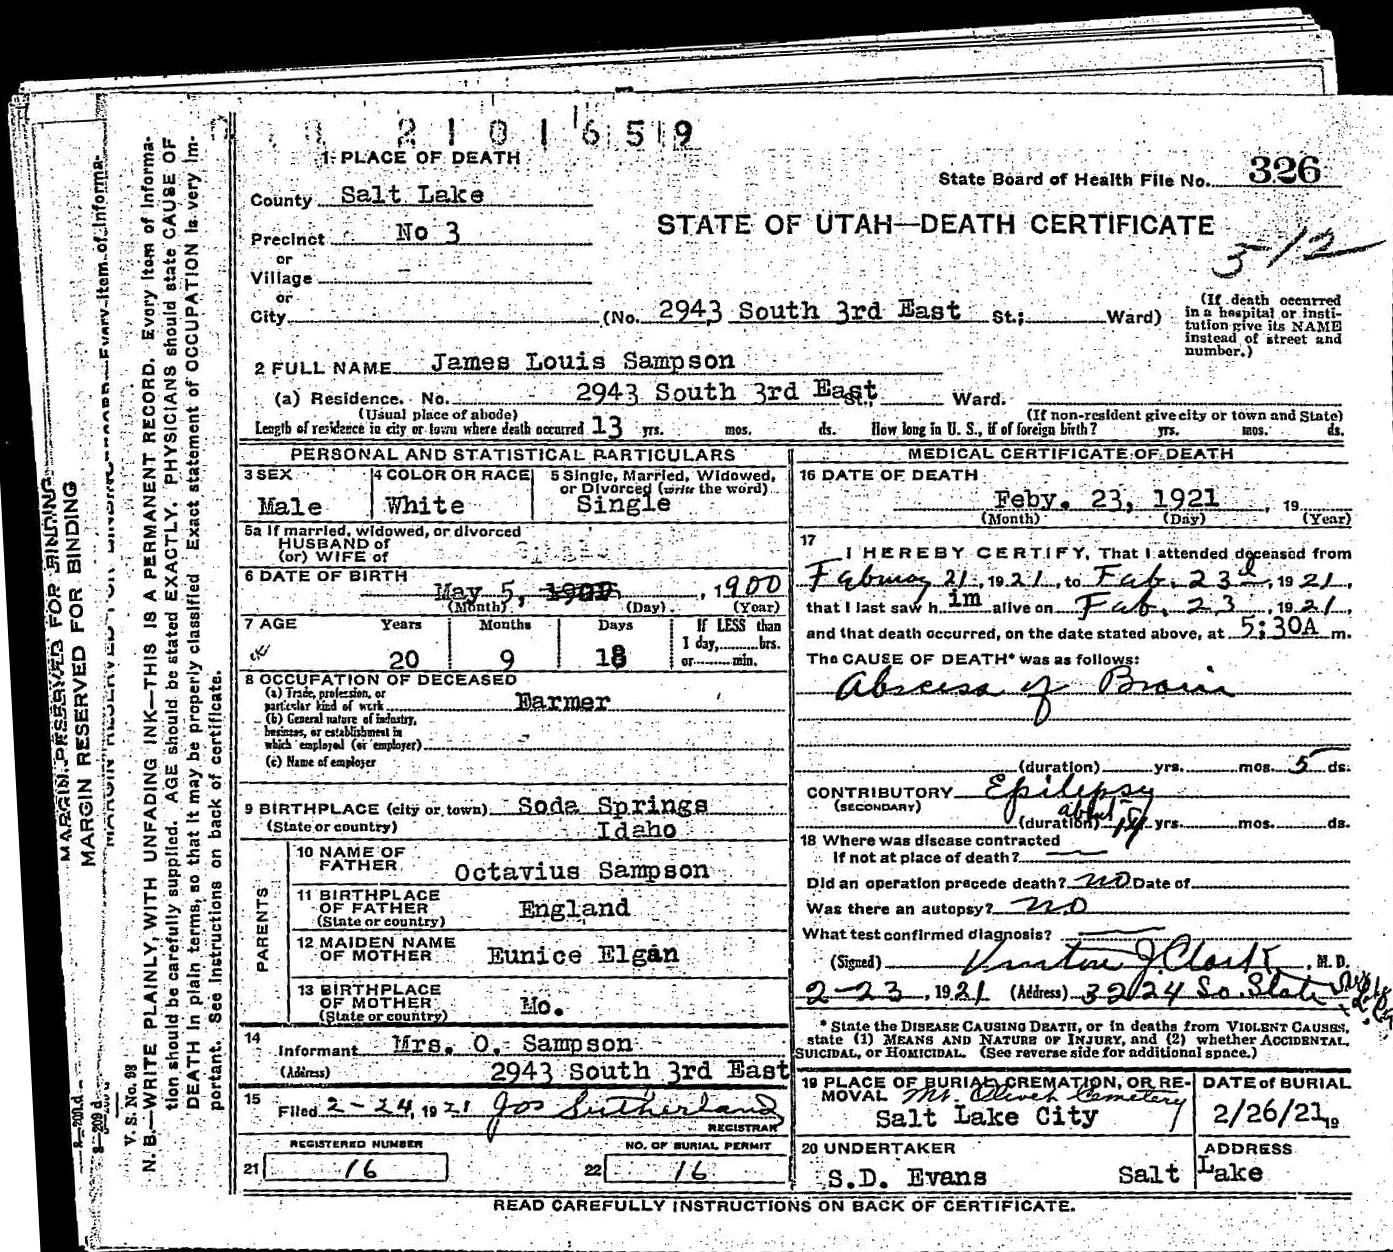 2101659
1 PLACE OF DEATH
State Board of Health File No. 326
County Salt Lake
STATE OF UTAH—DEATH CERTIFICATE
Precinct No 3
or
Village -
or
City (No. 2943 South 3rd East St.; Ward)
(If death occurred in a hospital or institution give its NAME instead of street and number.)
2 FULL NAME James Louis Sampson
(a) Residence. No. 2943 South 3rd East St., Ward.
(Usual place of abode) (If non-resident give city or town and State)
Length of residence in city or town where death occurred 13 yrs. mos. ds. How long in U. S., if of foreign birth? yrs. mos. ds.
PERSONAL AND STATISTICAL PARTICULARS
3 SEX
Male
4 COLOR OR RACE
White
5 Single, Married, Widowed,
or Divorced (write the word)
Single
5a If married, widowed, or divorced
HUSBAND of
(or) WIFE of
6 DATE OF BIRTH
May 5, , 1900
(Month) (Day) (Year)
7 AGE Years Months Days
20 9 18
If LESS than
1 day, hrs.
or min.
8 OCCUPATION OF DECEASED
(a) Trade, profession, or
particular kind of work Farmer
(b) General nature of industry,
business, or establishment in
which employed (or employer)
(c) Name of employer
9 BIRTHPLACE (city or town) Soda Springs
(State or country) Idaho
PARENTS
10 NAME OF
FATHER Octavius Sampson
11 BIRTHPLACE
OF FATHER England
(State or country)
12 MAIDEN NAME
OF MOTHER Eunice Elgan
13 BIRTHPLACE
OF MOTHER Mo.
(State or country)
14
Informant Mrs. O. Sampson
(Address) 2943 South 3rd East
15
Filed 2-24, 1921 Jos Sutherland
REGISTRAR
REGISTERED NUMBER NO. OF BURIAL PERMIT
21 16 22 16
MEDICAL CERTIFICATE OF DEATH
16 DATE OF DEATH
Feby. 23, 1921 , 19
(Month) (Day) (Year)
17
I HEREBY CERTIFY, That I attended deceased from
February 21, 1921, to Feb. 23d, 1921,
that I last saw him alive on Feb. 23, 1921,
and that death occurred, on the date stated above, at 5:30A m.
The CAUSE OF DEATH* was as follows:
Abscess of Brain
(duration) yrs. mos. 5 ds.
CONTRIBUTORY Epilepsy
(SECONDARY)
about
(duration) yrs. mos. ds.
18 Where was disease contracted
If not at place of death?
Did an operation precede death? no Date of
Was there an autopsy? no
What test confirmed diagnosis?
(Signed) J. Clark, M. D.
2-23, 1921 (Address) 3224 So. State
* State the DISEASE CAUSING DEATH, or in deaths from VIOLENT CAUSES,
state (1) MEANS AND NATURE OF INJURY, and (2) whether ACCIDENTAL,
SUICIDAL, or HOMICIDAL. (See reverse side for additional space.)
19 PLACE OF BURIAL, CREMATION, OR RE-
MOVAL Mt. Olivet Cemetery
Salt Lake City
DATE of BURIAL
2/26/21, 19
20 UNDERTAKER
S.D. Evans
ADDRESS
Salt Lake
READ CAREFULLY INSTRUCTIONS ON BACK OF CERTIFICATE.
MARGIN RESERVED FOR BINDING
MARGIN RESERVED FOR BINDING
V. S. No. 98
N. B.—WRITE PLAINLY, WITH UNFADING INK—THIS IS A PERMANENT RECORD. Every item of informa-
tion should be carefully supplied. AGE should be stated EXACTLY. PHYSICIANS should state CAUSE OF
DEATH in plain terms, so that it may be properly classified. Exact statement of OCCUPATION is very im-
portant. See instructions on back of certificate.